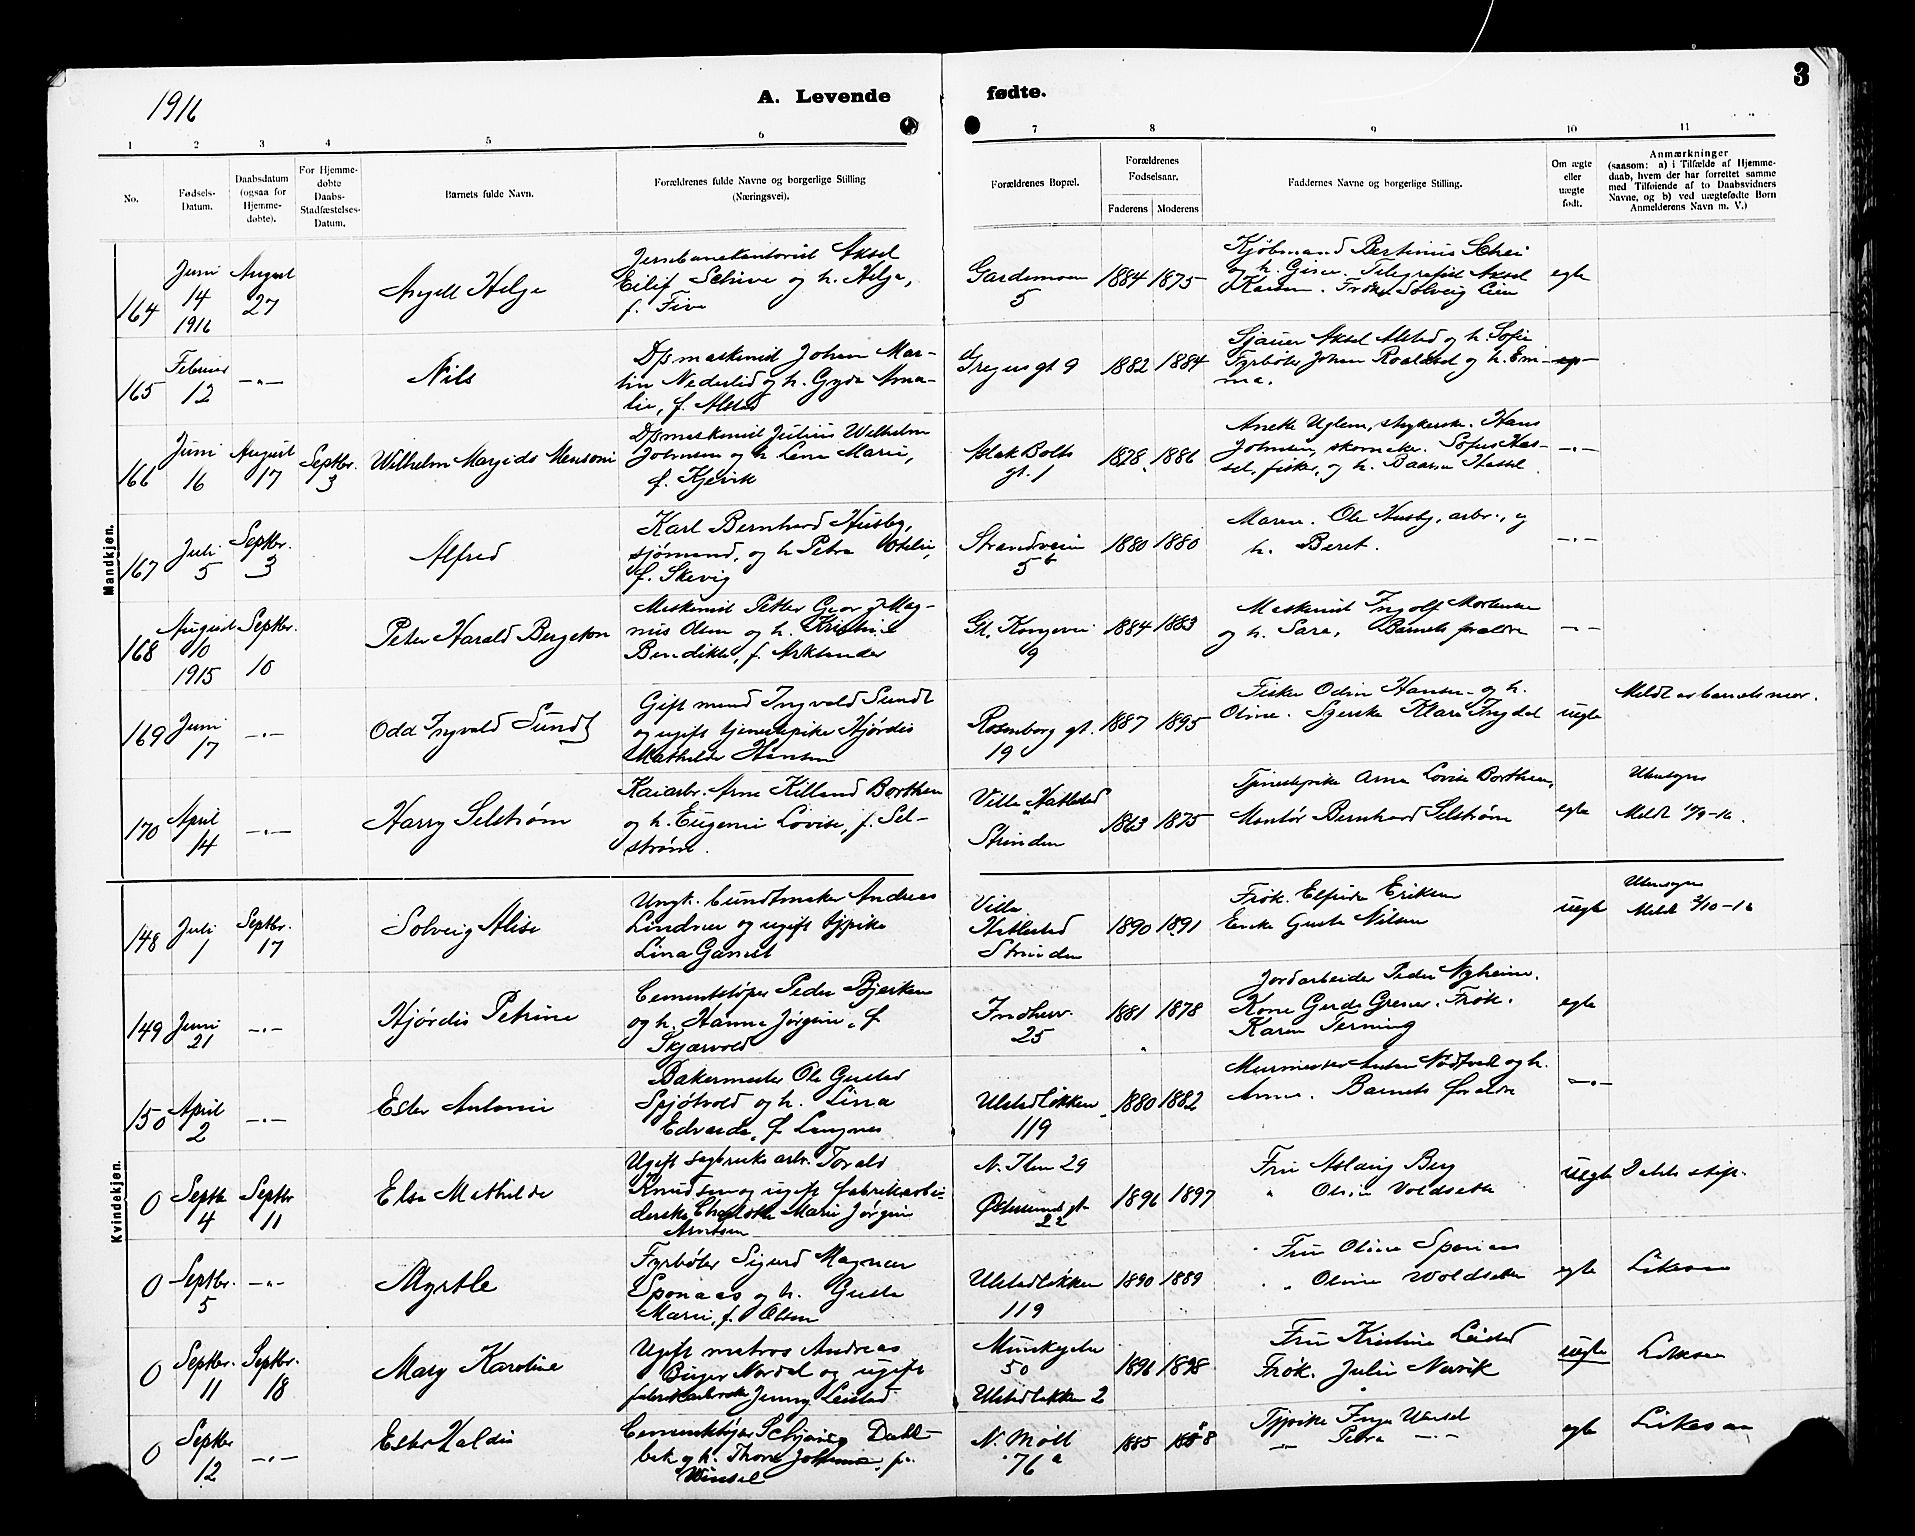 1916
A. Levende fødte.
3
1 2 3 4 5 6 7 8 9 10 11
No.
Fødsels-
Datum.
Daabsdatum
(ogsaa for
Hjemme-
døbte).
For Hjemme-
døbte
Daabs-
Stadfæstelses-
Datum.
Barnets fulde Navn.
Forældrenes fulde Navne og borgerlige Stilling
(Næringsvei).
Forældrenes Bopæl.
Forældrenes
Fødselsaar.
Faderens Moderens
Faddernes Navne og borgerlige Stilling.
Om ægte
eller
uægte
født.
Anmærkninger
(saasom: a) i Tilfælde af Hjemme-
daab, hvem der har forrettet samme
med Tilføiende af to Daabsvidners
Navne, og b) ved uægtefødte Børn
Anmelderens Navn m. V.)
Mandkjøn.
164
Juni
14
1916
August
27
Helge
Aksel
Eilif Schive og h. Helga,
f.
Gardemoen
5
1884 1875
Kjøbmand Bertinius Schei
og h. Telegrafist Aksel
Frøken Solveig
egte
165
Februar
12
-"-
Nils
D/s maskinist Johan Mar-
tin Nederlid og h. Gyda Ama-
lie, f. Alstad
gt 9
1882 1884
Sjauer Aksel Alstad og h. Sofie
Fyrbøter Johan og h. Em-
ma.
166
Juni
16
August
17
Septbr.
3
Wilhelm
D/s maskinist Julius Wilhelm
Johnsen og h. Lena Marie,
f. Kjervik
Aslak Bolts
gt. 1
1878 1886
Uglem, strykerske. Hans
Johnsen, skomaker. Sofus Has-
sel, fisker, og h. Hassel.
-"-
167
Juli
5
Septbr.
3
Alfred
Karl Bernhard Husby,
sjømand, og h. Petra
f. Skevig
Strandveien
5 b
1880 1880
Moren. Ole Husby, arb., og
h. Beret.
-"-
168
August
10
1915
Septbr.
10
Peter Harald Bergeton
Maskinist Petter Georg Mag-
nus Olsen og h. Kristine
Bendikte, f.
Gl. Kongevei
9
1884 1883
Maskinist Ingolf Mortensen
og h. Sara, Barnets forældre
-"-
169
Juni
17
-"-
Odd Ingvald Sundt
Gift mand Ingvald Sundt
og ugift tjenestepike Hjørdis
Mathilde Hansen
Rosenborg gt.
19
1887 1895
Fisker Odin Hansen og h.
Oline. Syerske Klara Ingdal
uegte
Meldt av barnets mor.
170
April
14
-"-
Harry Selstrøm
Kaiarb. Arne Killand Borthen
og h. Eugenie Lovise, f. Sel-
strøm.
Villa Hatlestad
Strinden
1863 1875
Tjenestepike Arna Lovise Borthen,
Montør Bernhard Selstrøm
egte
Utensogns
Meldt 19/9-16.
Kvindekjøn.
148
Juli
1
Septbr.
17
Solveig Alise
Ungk. Buntmaker Andreas
Lindvær og ugift tjpike
Lina
Villa
Hatlestad
Strinden
1890 1891
Frøk. Elfrida Eriksen
Enke Gusta Nilsen
uegte
Utensogns
Meldt 2/10-16
149
Juni
21
-"-
Hjørdis Petrine
Cementstøper Peder Bjerkan
og h. Hanna Jørgine, f.
Skjærvold
Indherr.
25
1881 1878
Jordarbeider Peder Nyheim.
Kone Gerda Frøk.
Karen Terning
egte
150
April
2
-"-
Ester Antonie
Bakermester Ole Gustad
Spjøtvold og h. Lina
Edvarda, f. Langnes
Ulstadløkken
119
1880 1882
Murmester Anton Nødtvedt og h.
Anna. Barnets forældre
-"-
0
Septbr
4
Septbr
11
Elsa Mathilde
Ugift sagbruksarb. Torald
Knudsen og ugift fabrikarbei-
derske Charlotte Marie Jørgine
Arntsen
N. Ilen 29
Østersunds gt.
22
1896 1897
Fru Aslaug Berg
" Oline Voldsæth
uegte
Dahls stif.
0
Septbr.
5
-"-
Myrtle
Fyrbøter Sigurd Magnar
Sponaas og h. Gusta
Marie, f. Olsen
Ulstadløkken
119
1890 1889
Fru Oline Sponaas
" Oline Woldsæth
egte
Likesaa
0
Septbr.
11
Septbr.
18
Mary Karoline
Ugift matros Andreas
Birger Nordal og ugift
fabrikarbeiderske Jenny Leistad
Munkegaten
50
Ulstadløkken 2
1896 1898
Fru Kristine Leistad
Frøk. Julie Nervik
uegte
Likesaa
0
Septbr
12
-"-
Ester Valdis
Cementstøper Dahl-
bek og h. Thora Johanna, f.
Winsel
N. Møll
76 a
1885 1888
Tjpike Inga Winsel
-"- Petra -"-
egte
Likesaa